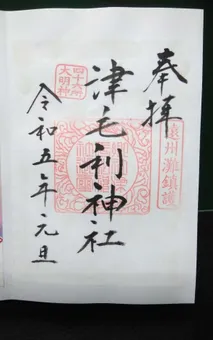 奉拝
遠州灘鎮護
津毛利神社
四十六所
大明神
令和五年元旦